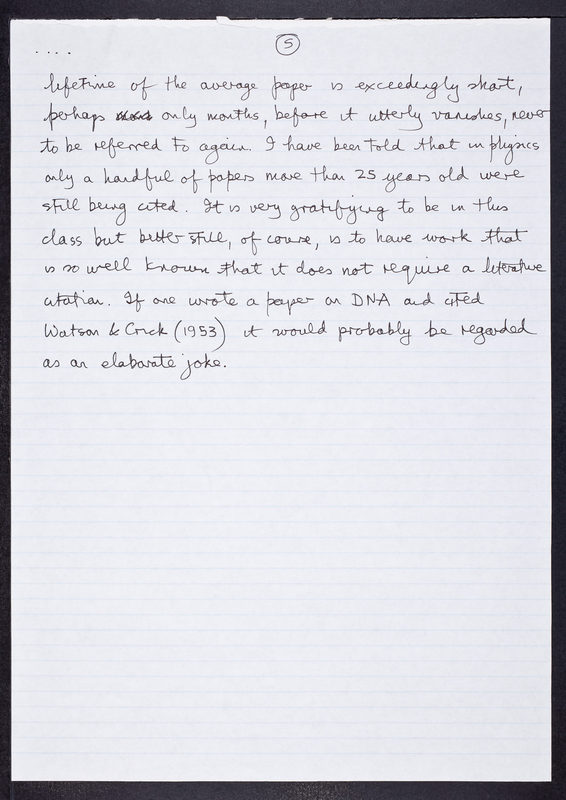 ....
5
lifetime of the average paper is exceedingly short,
perhaps only months, before it utterly vanishes, never
to be referred to again. I have been told that in physics
only a handful of papers more than 25 years old were
still being cited. It is very gratifying to be in this
class but better still, of course, is to have work that
is so well known that it does not require a literature
citation. If one wrote a paper on DNA and cited
Watson & Crick (1953) it would probably be regarded
as an elaborate joke.